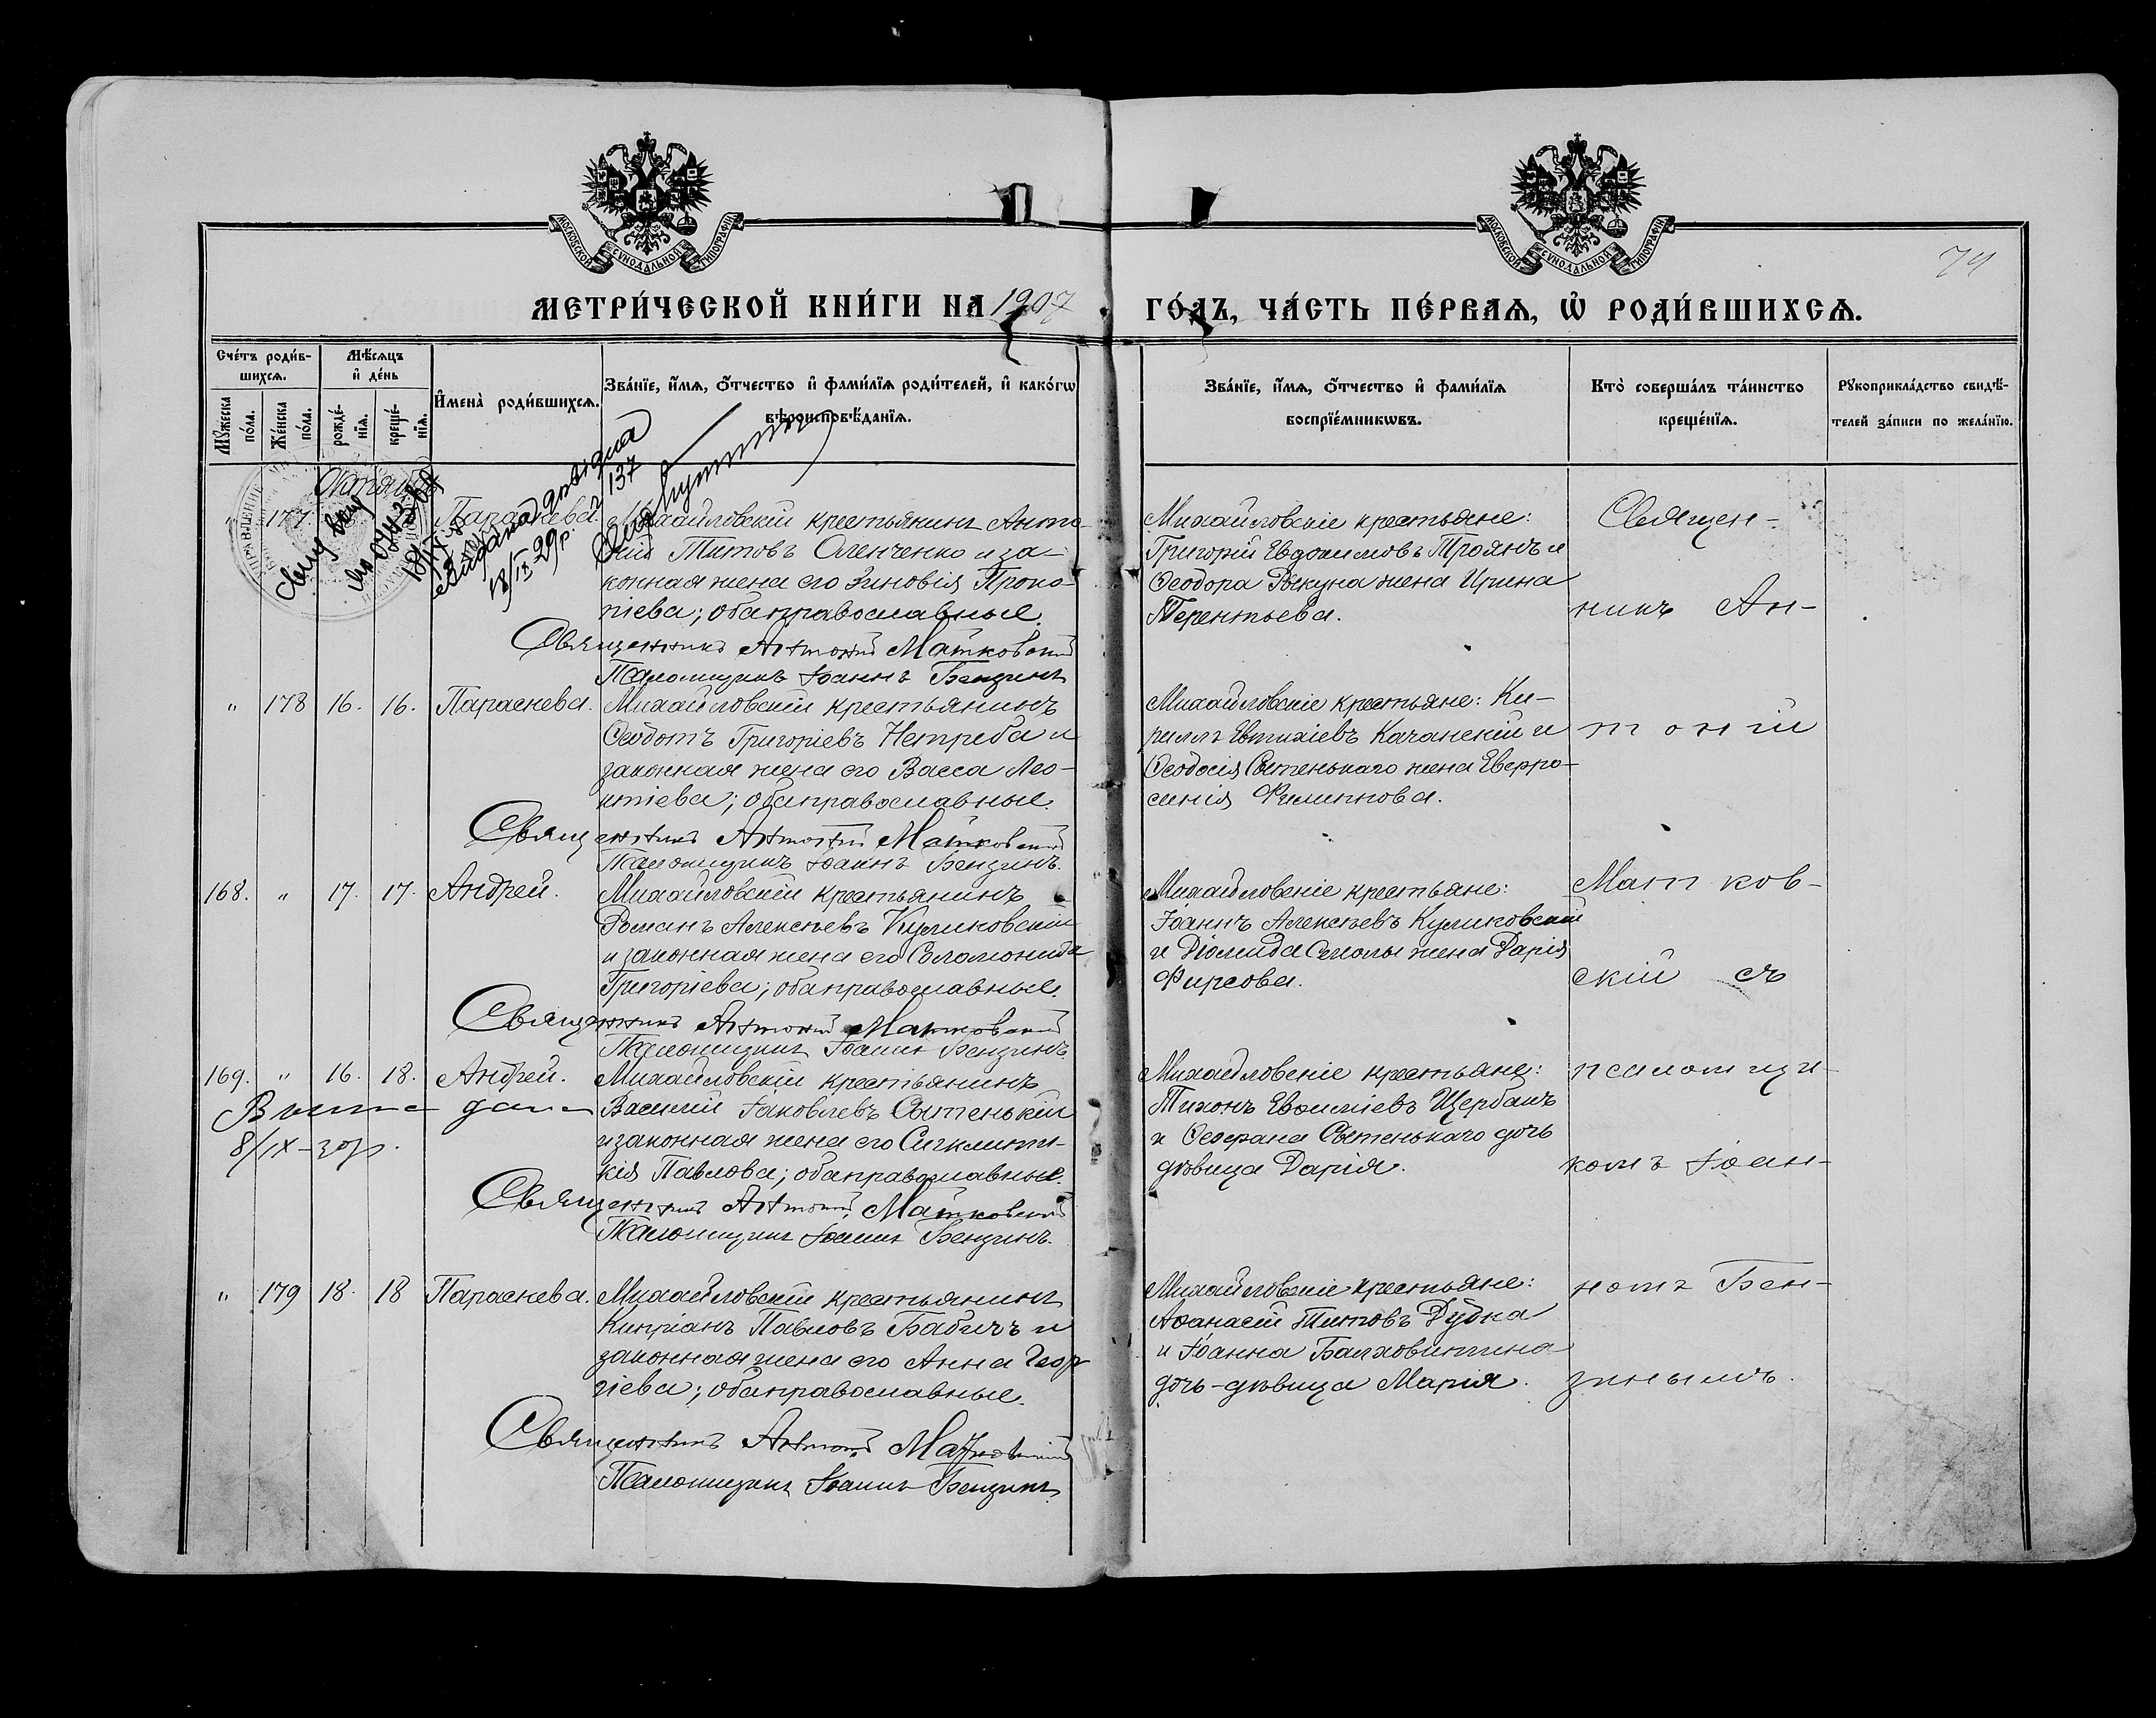 МОСКОВСКОЙ СѴНОДАЛЬНОЙ ТИПОГРАФІИ
МОСКОВСКОЙ СѴНОДАЛЬНОЙ ТИПОГРАФІИ
74
МЕТРИ́ЧЕСКОЙ КНИ́ГИ НА 1907 ГО́ДЪ, ЧА́СТЬ ПЕ́РВАѦ, Ѡ РОДИ́ВШИХСѦ.
Сче́тъ роди́в-
шихсѧ.
Мꙋ́жеска по́ла.
Же́нска по́ла.
Мѣ́сяцъ
и҆ де́нь
рожде́-
нїѧ.
креще́-
нїѧ.
И҆мена̀ роди́вшихсѧ.
Зва́нїе, и҆́мѧ, о҆́тчество и҆ фами́лїѧ роди́телей, и҆ како́гѡ
вѣроисповѣ́данїѧ.
Зва́нїе, и҆́мѧ, о҆́тчество и҆ фами́лїѧ
воспрїе́мникѡвъ.
Кто̀ соверша́лъ та́инство
креще́нїѧ.
Рꙋкоприкла́дство свидѣ́-
телей за́писи по жела́нїю.
Октябрь
" 177. Параскева. Михайловскій крестьянинъ Анто-
ній Титовъ Оленченко и за-
конная жена его Зиновія Проко-
піева; оба православные.
18/IX 29р.
137
Священникъ Антоній Матковскій
Псаломщикъ Іоаннъ Бензинъ
Михайловскіе крестьяне:
Григорій Евдокимовъ Троянъ и
Ѳеодора Рыкуна жена Ирина
Терентьева.
" 178 16. 16. Параскева. Михайловскій крестьянинъ
Ѳеодотъ Григоріевъ Нетреба и
законная жена его Васса Лео-
нтіева; оба православные.
Священникъ Антоній Матковскій
Псаломщикъ Іоаннъ Бензинъ.
Михайловскіе крестьяне: Ки-
риллъ Евтихіевъ Качанскій и
Ѳеодосія Сытенькаго жена Евфро-
синія Филиппова.
168. " 17. 17. Андрей. Михайловскій крестьянинъ
Романъ Алексѣевъ Куликовскій
и законная жена его Соломонида
Григоріева; оба православные.
Священникъ Антоній Матковскій
Псаломщикъ Іоаннъ Бензинъ
Михайловскіе крестьяне:
Іоаннъ Алексѣевъ Куликовскій
и Діомида Смолы жена Дарія
Фирсова.
169. " 16. 18. Андрей. Михайловскій крестьянинъ
Василій Іаковлевъ Сытенькій
и законная жена его Сигклити-
кія Павлова; оба православные.
8/IX-30р.
Священникъ Антоній Матковскій
Псаломщикъ Іоаннъ Бензинъ.
Михайловскіе крестьяне:
Тихонъ Евѳиміевъ Щербакъ
и Ѳеофана Сытенькаго дочь
дѣвица Дарія.
" 179 18. 18 Параскева. Михайловскій крестьянинъ
Кипріанъ Павловъ Бабичъ и
законная жена его Анна Геор
гіева; оба православные.
Священникъ Антоній Матковскій
Псаломщикъ Іоаннъ Бензинъ
Михайловскіе крестьяне:
Аѳанасій Титовъ Дудка
и Іоанна Балховитина
дочь-дѣвица Марія.
Священ-
никъ Ан-
тоній
Матков-
скій съ
псаломщи-
комъ Іоан-
номъ Бен-
зинымъ.